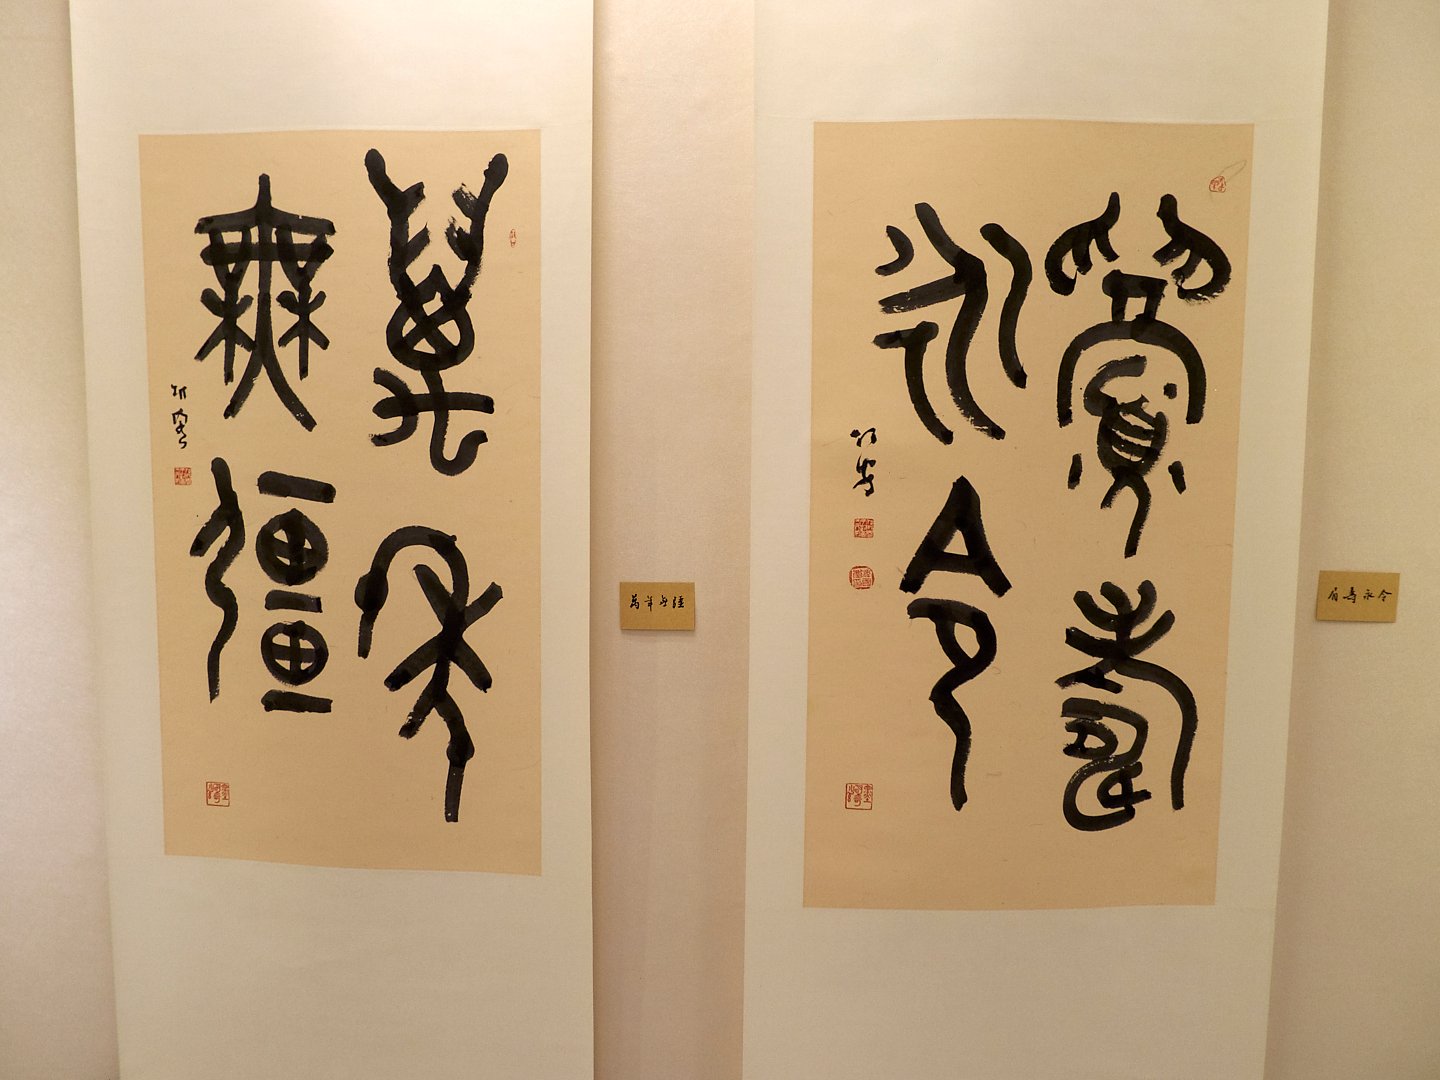 眉壽
永令
眉壽永令
萬年
無疆
萬年無疆